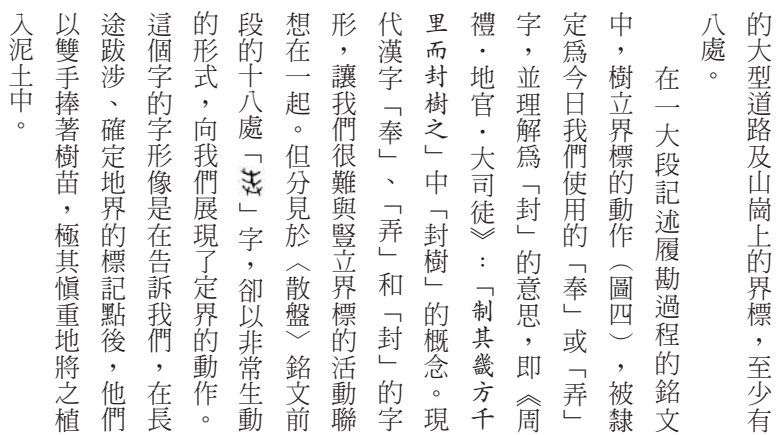 的大型道路及山崗上的界標，至少有
八處。
在一大段記述履勘過程的銘文
中，樹立界標的動作（圖四），被隸
定爲今日我們使用的「奉」或「弄」
字，並理解爲「封」的意思，即《周
禮．地官．大司徒》：「制其畿方千
里而封樹之」中「封樹」的概念。現
代漢字「奉」、「弄」和「封」的字
形，讓我們很難與豎立界標的活動聯
想在一起。但分見於〈散盤〉銘文前
段的十八處「」字，卻以非常生動
的形式，向我們展現了定界的動作。
這個字的字形像是在告訴我們，在長
途跋涉、確定地界的標記點後，他們
以雙手捧著樹苗，極其愼重地將之植
入泥土中。